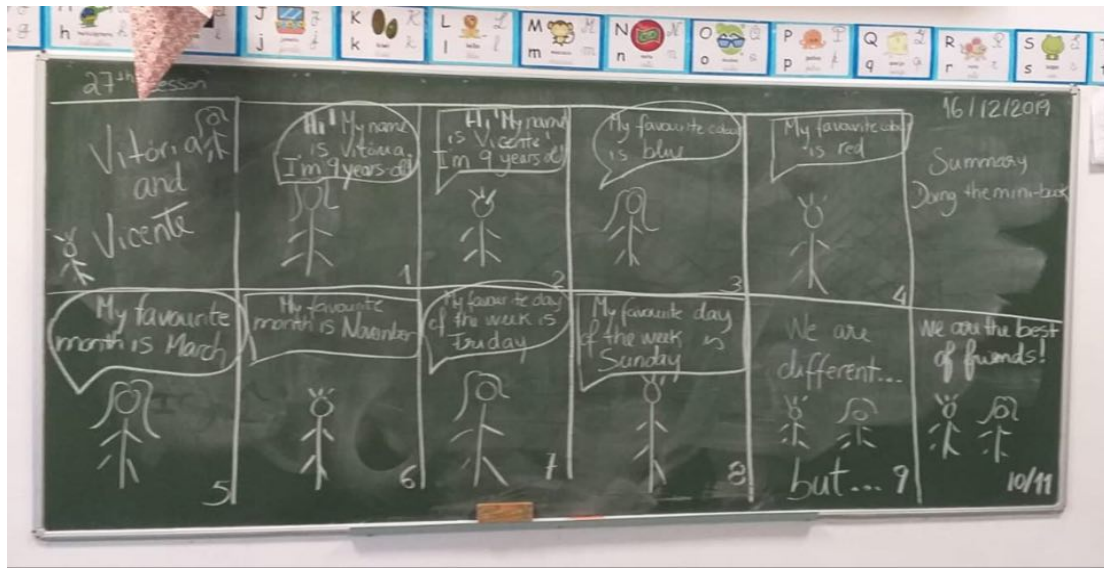 H
h
J
j
K
k
kiwi
L
l
M
m
N
n
O
o
P
p
Q
q
R
r
S
s
27th Lesson
16/12/2019
Vitória
and
Vicente
Hi! My name
is Vitória.
I'm 9 years-old
1
Hi! My name
is Vicente!
I'm 9 years-old
2
My favourite colour
is blue
3
My favourite colour
is red
4
Summary
Doing the mini-book
My favourite
month is March
5
My favourite
month is November
6
My favourite day
of the week is
friday
7
My favourite day
of the week is
Sunday
8
We are
different...
but... 9
We are the best
of friends!
10/11